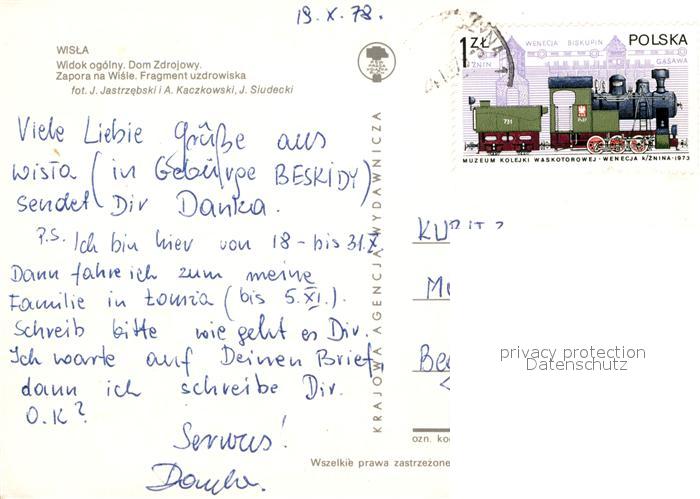 19. X. 78.
WISŁA
Widok ogólny. Dom Zdrojowy.
Zapora na Wiśle. Fragment uzdrowiska
fot. J. Jastrzębski i A. Kaczkowski, J. Siudecki
Viele Liebie Grüße aus
Wisła (in Gebürge BESKIDY)
sendet Dir Danka.
P.S. Ich bin hier von 18 - bis 31.X
Dann fahre ich zum meine
Familie in Łomża (bis 5.XI.).
Schreib bitte wie geht es Dir.
Ich warte auf Deinen Brief,
dann ich schreibe Dir.
O.K?
Serwus!
Danka.
KRAJOWA AGENCJA WYDAWNICZA
1 ZŁ
POLSKA
WENECJA BISKUPIN
ŻNIN
GĄSAWA
731
MUZEUM KOLEJKI WĄSKOTOROWEJ · WENECJA K/ŻNINA · 1973
privacy protection
Datenschutz
ozn. ko
Wszelkie prawa zastrzeżone